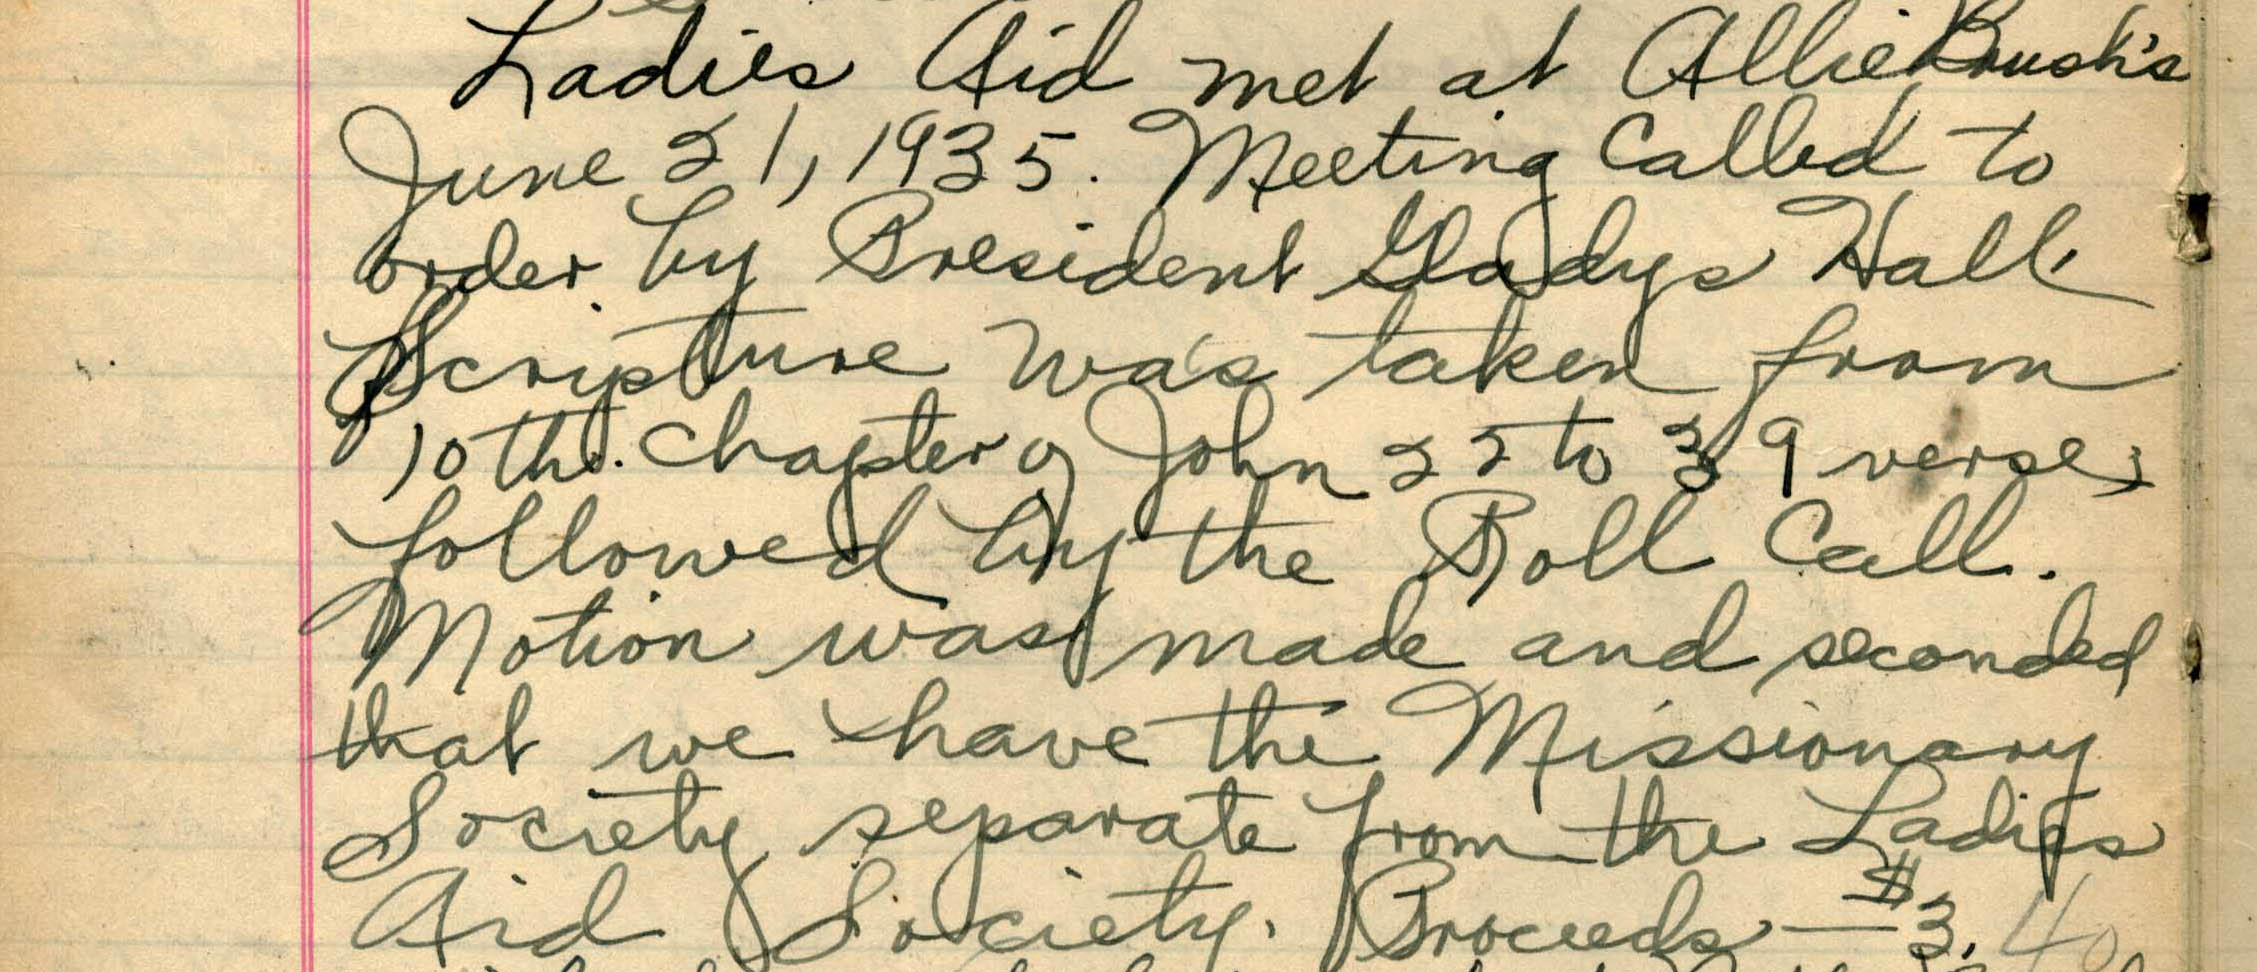 Ladies Aid met at Allie Brush's
June 21, 1935. Meeting Called to
order by President Gladys Hall.
Scripture was taken from
10th. Chapter of John 22 to 39 verse;
followed by the Roll Call.
Motion was made and seconded
that we have the Missionary
Society separate from the Ladies
Aid Society. Proceeds — $3.40